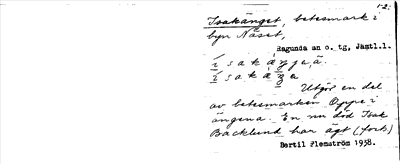 1-2.
Isakänget, betesmark i
byn Näset,
Ragunda sn o. tg, Jämtl.l.
i s a k
i s a k
Utgör en del
av betesmarken Oppe i
ängena. En nu död Isak
Backlund har ägt (förkl)
Bertil Flemström 1938.